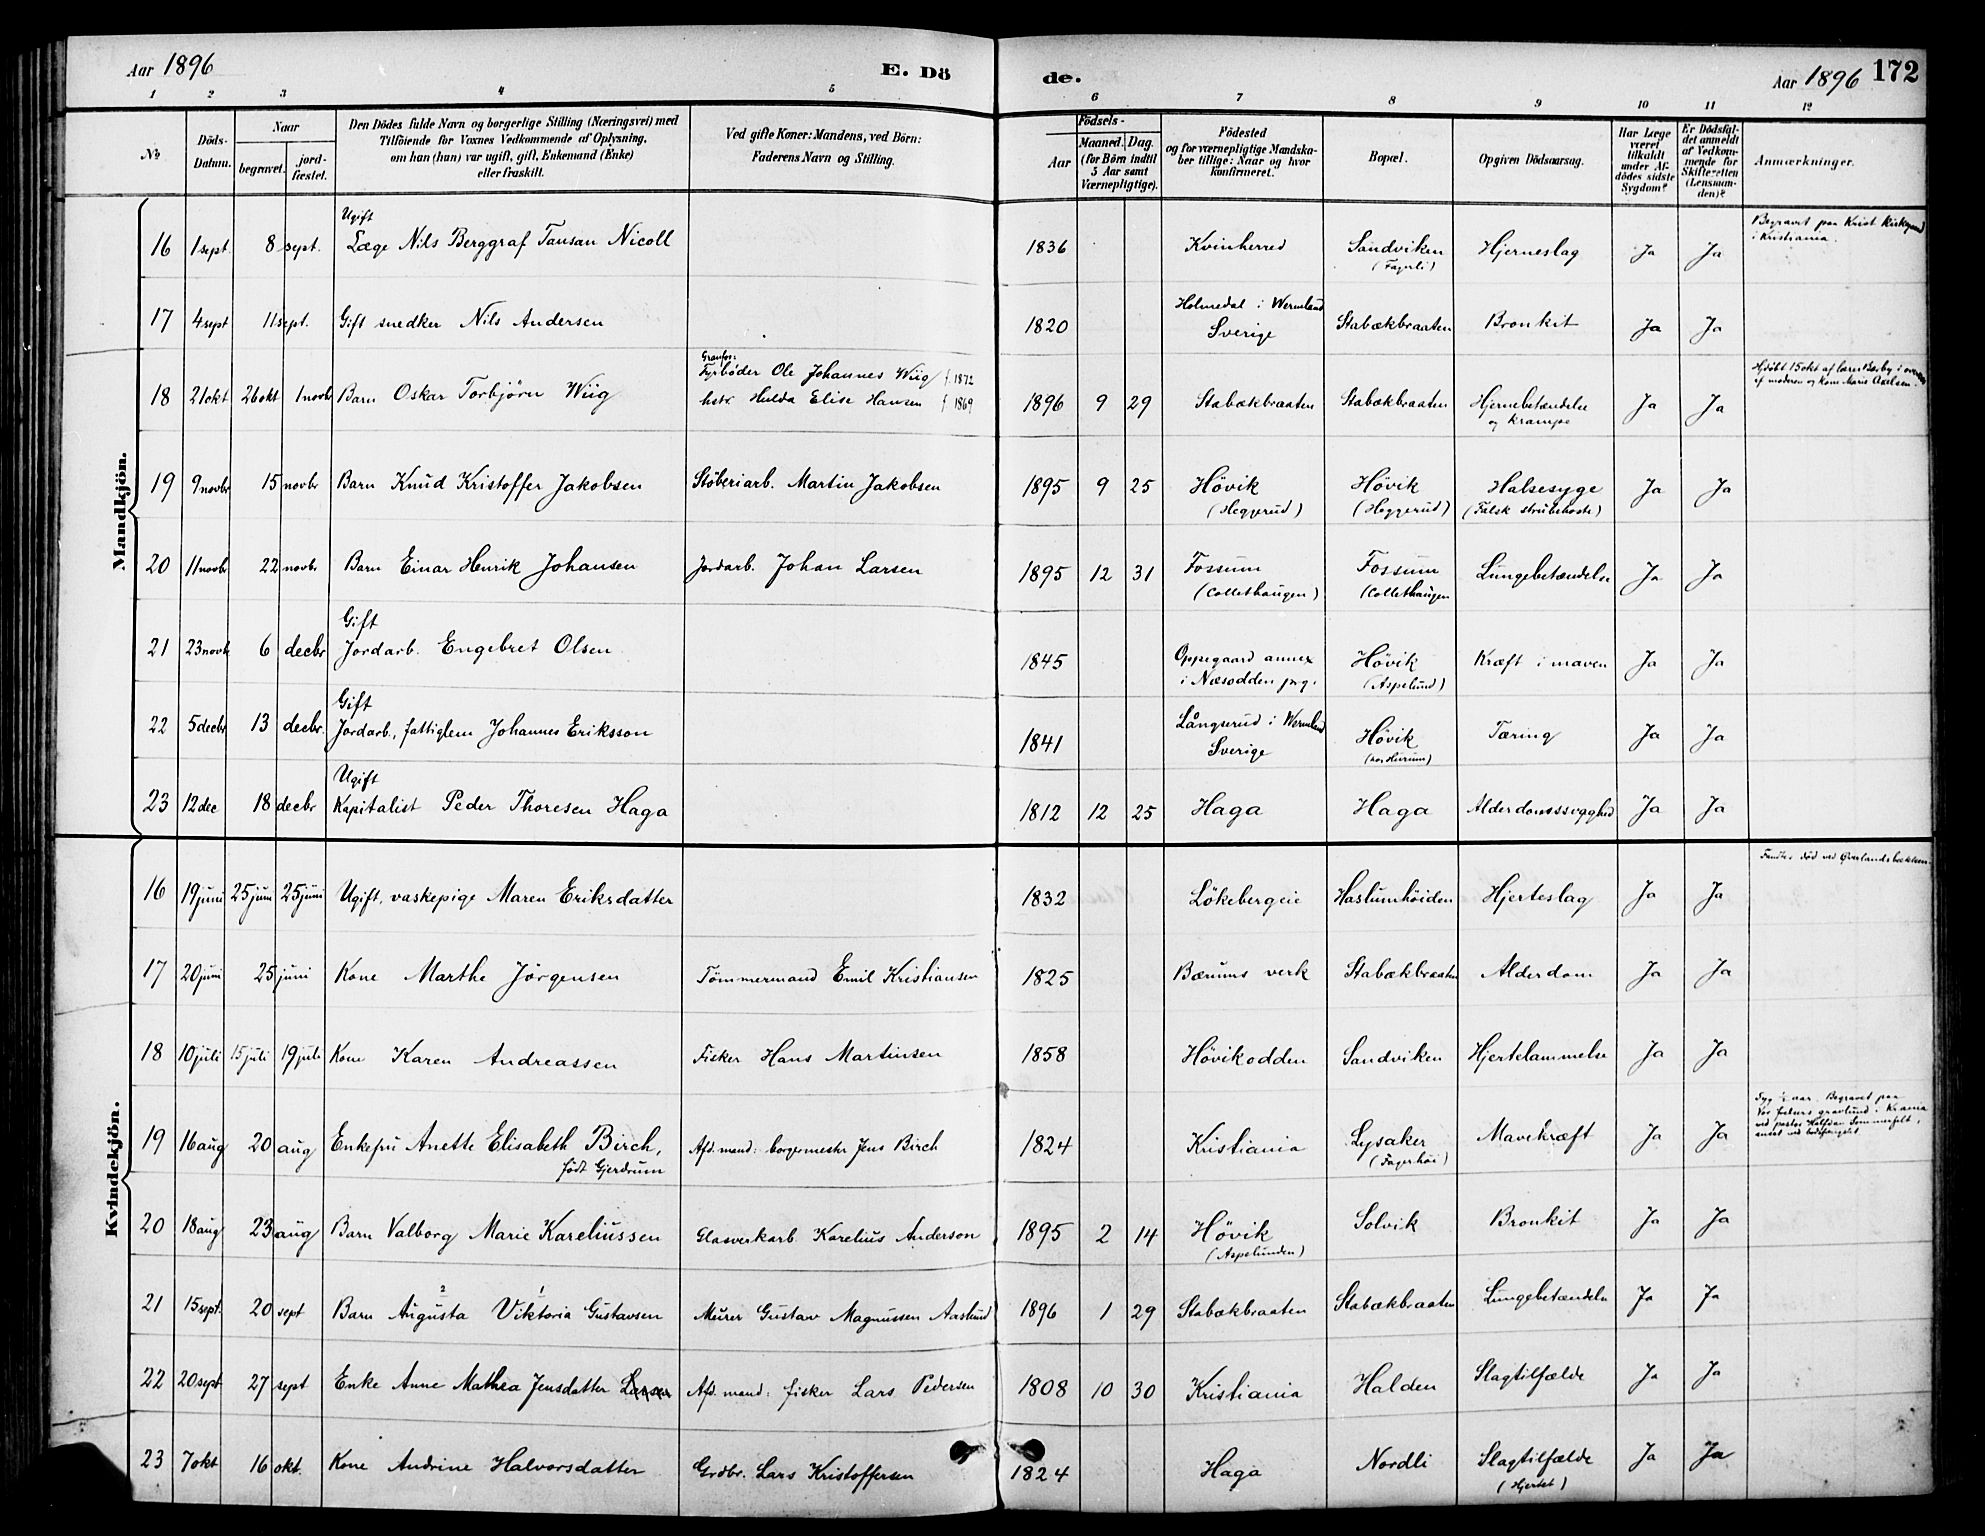 Aar 1896 E. Dö de. Aar 1896 172
1 2 3 4 5 6 7 8 9 10 11 12
No
Döds-Datum.
Naar
begravet.
jord-fæstet.
Den Dödes fulde Navn og borgerlige Stilling (Næringsvei) med
Tilföiende för Voxnes Vedkommende af Oplysning,
om han (hun) var ugift, gift, Enkemand (Enke)
eller fraskilt.
Ved gifte Koner: Mandens, ved Börn:
Faderens Navn og Stilling.
Födsels-
Aar
Maaned. Dag.
(for Börn indtil
5 Aar samt
Værnepligtige).
Födested
og for værnepligtige Mandska-
ber tillige: Naar og hvor
konfirmeret.
Bopæl.
Opgiven Dödsaarsag.
Har Læge
været
tilkaldt
under Af-
dödes sidste
Sygdom?
Er Dödsfal-
det anmeldt
af Vedkom-
mende for
Skifteretten
(Lensman-
den)?
Anmærkninger.
Mandkjön.
Ugift
16 1 sept. 8 sept. Læge Nils Berggraf Tausan Nicoll 1836 Kvinherred Sandviken (Fagerli) Hjerneslag Ja Ja Begravet paa Krist Kirkegaard i Kristiania.
17 4 sept 11 sept. Gift snedker Nils Andersen 1820 Holmedal i Wermland Sverige Stabækbraaten Bronkit Ja Ja
18 21 okt 26 okt 1 novbr Barn Oskar Torbjörn Wiig Granfos: Fyrbøder Ole Johannes Wiig f. 1872
hstr Hulda Elise Hansen f 1869 1896 9 29 Stabækbraaten Stabækbraaten Hjernebetændelse og krampe Ja Ja Hjdöbt 15 okt af lærer
af moderen og kone Marie Axelsen.
19 9 novbr 15 novbr Barn Knud Kristoffer Jakobsen Støberiarb. Martin Jakobsen 1895 9 25 Hövik (Heggerud) Hövik (Heggerud) Halsesyge (Falsk strubehoste) Ja Ja
20 11 novbr 22 novbr Barn Einar Henrik Johansen Jordarb. Johan Larsen 1895 12 31 Fossum (Colletshaugen) Fossum (Colletshaugen Lungebetændelse Ja Ja
Gift
21 23 novb 6 decbr Jordarb. Engebret Olsen 1845 Oppegaard annex i Næsodden prg. Hövik (Aspelund) Kræft i maven Ja Ja
Gift
22 5 decbr 13 decbr. Jordarb., fattiglem Johannes Eriksson 1841 Långserud i Wermland Sverige Hövik Tæring Ja Ja
Ugift
23 12 dec 18 decbr Kapitalist Peder Thoresen Haga 1812 12 25 Haga Haga Alderdomssvaghed Ja Ja
Kvindekjön.
16 19 juni 25 juni 25 juni Ugift, vaskepige Maren Eriksdatter 1832 Lökebergeie Haslumhöiden Hjerteslag Ja Ja Fandtes död ved Øverlandsbækken.
17 20 juni 25 juni Kone Marthe Jörgensen Tömmermand Emil Kristiansen 1825 Bærums verk Stabækbraaten Alderdom Ja Ja
18 10 juli 15 juli 19 juli Kone Karen Andreassen Fisker Hans Martinsen 1858 Hövikodden Sandviken Hjertelammelse Ja Ja
19 16 aug 20 aug Enkefru Anette Elisabeth Birch, født Gjerdrum Afd. mand: borgermester Jens Birch 1824 Kristiania Lysaker (Fagerhöi) Mavekræft Ja Ja Syg ½ aar. Begravet paa
Vor frelsers gravlund i Krania
ved pastor Halfdan Sommerfelt,
20 18 aug 23 aug Barn Valborg Marie Kareliussen Glasverkarb. Karelius Anderson 1895 2 14 Hövik (Aspelunden) Solvik Bronkit Ja Ja
2 1
21 15 sept. 20 sept Barn Augusta Viktoria Gustavsen Murer Gustav Magnussen Aaslund 1896 1 29 Stabækbraaten Stabækbraaten Lungebetændelse Ja Ja
22 20 sept 27 sept Enke Anne Mathea Jensdatter Larsen Afd. mand: fisker Lars Pedersen 1808 10 30 Kristiania Halden Slagtilfælde Ja Ja
23 7 okt 16 okt. Kone Andrine Halvorsdatter Grdbr. Lars Kristoffersen 1824 Haga Nordli Slagtilfælde (Hjertet) Ja Ja